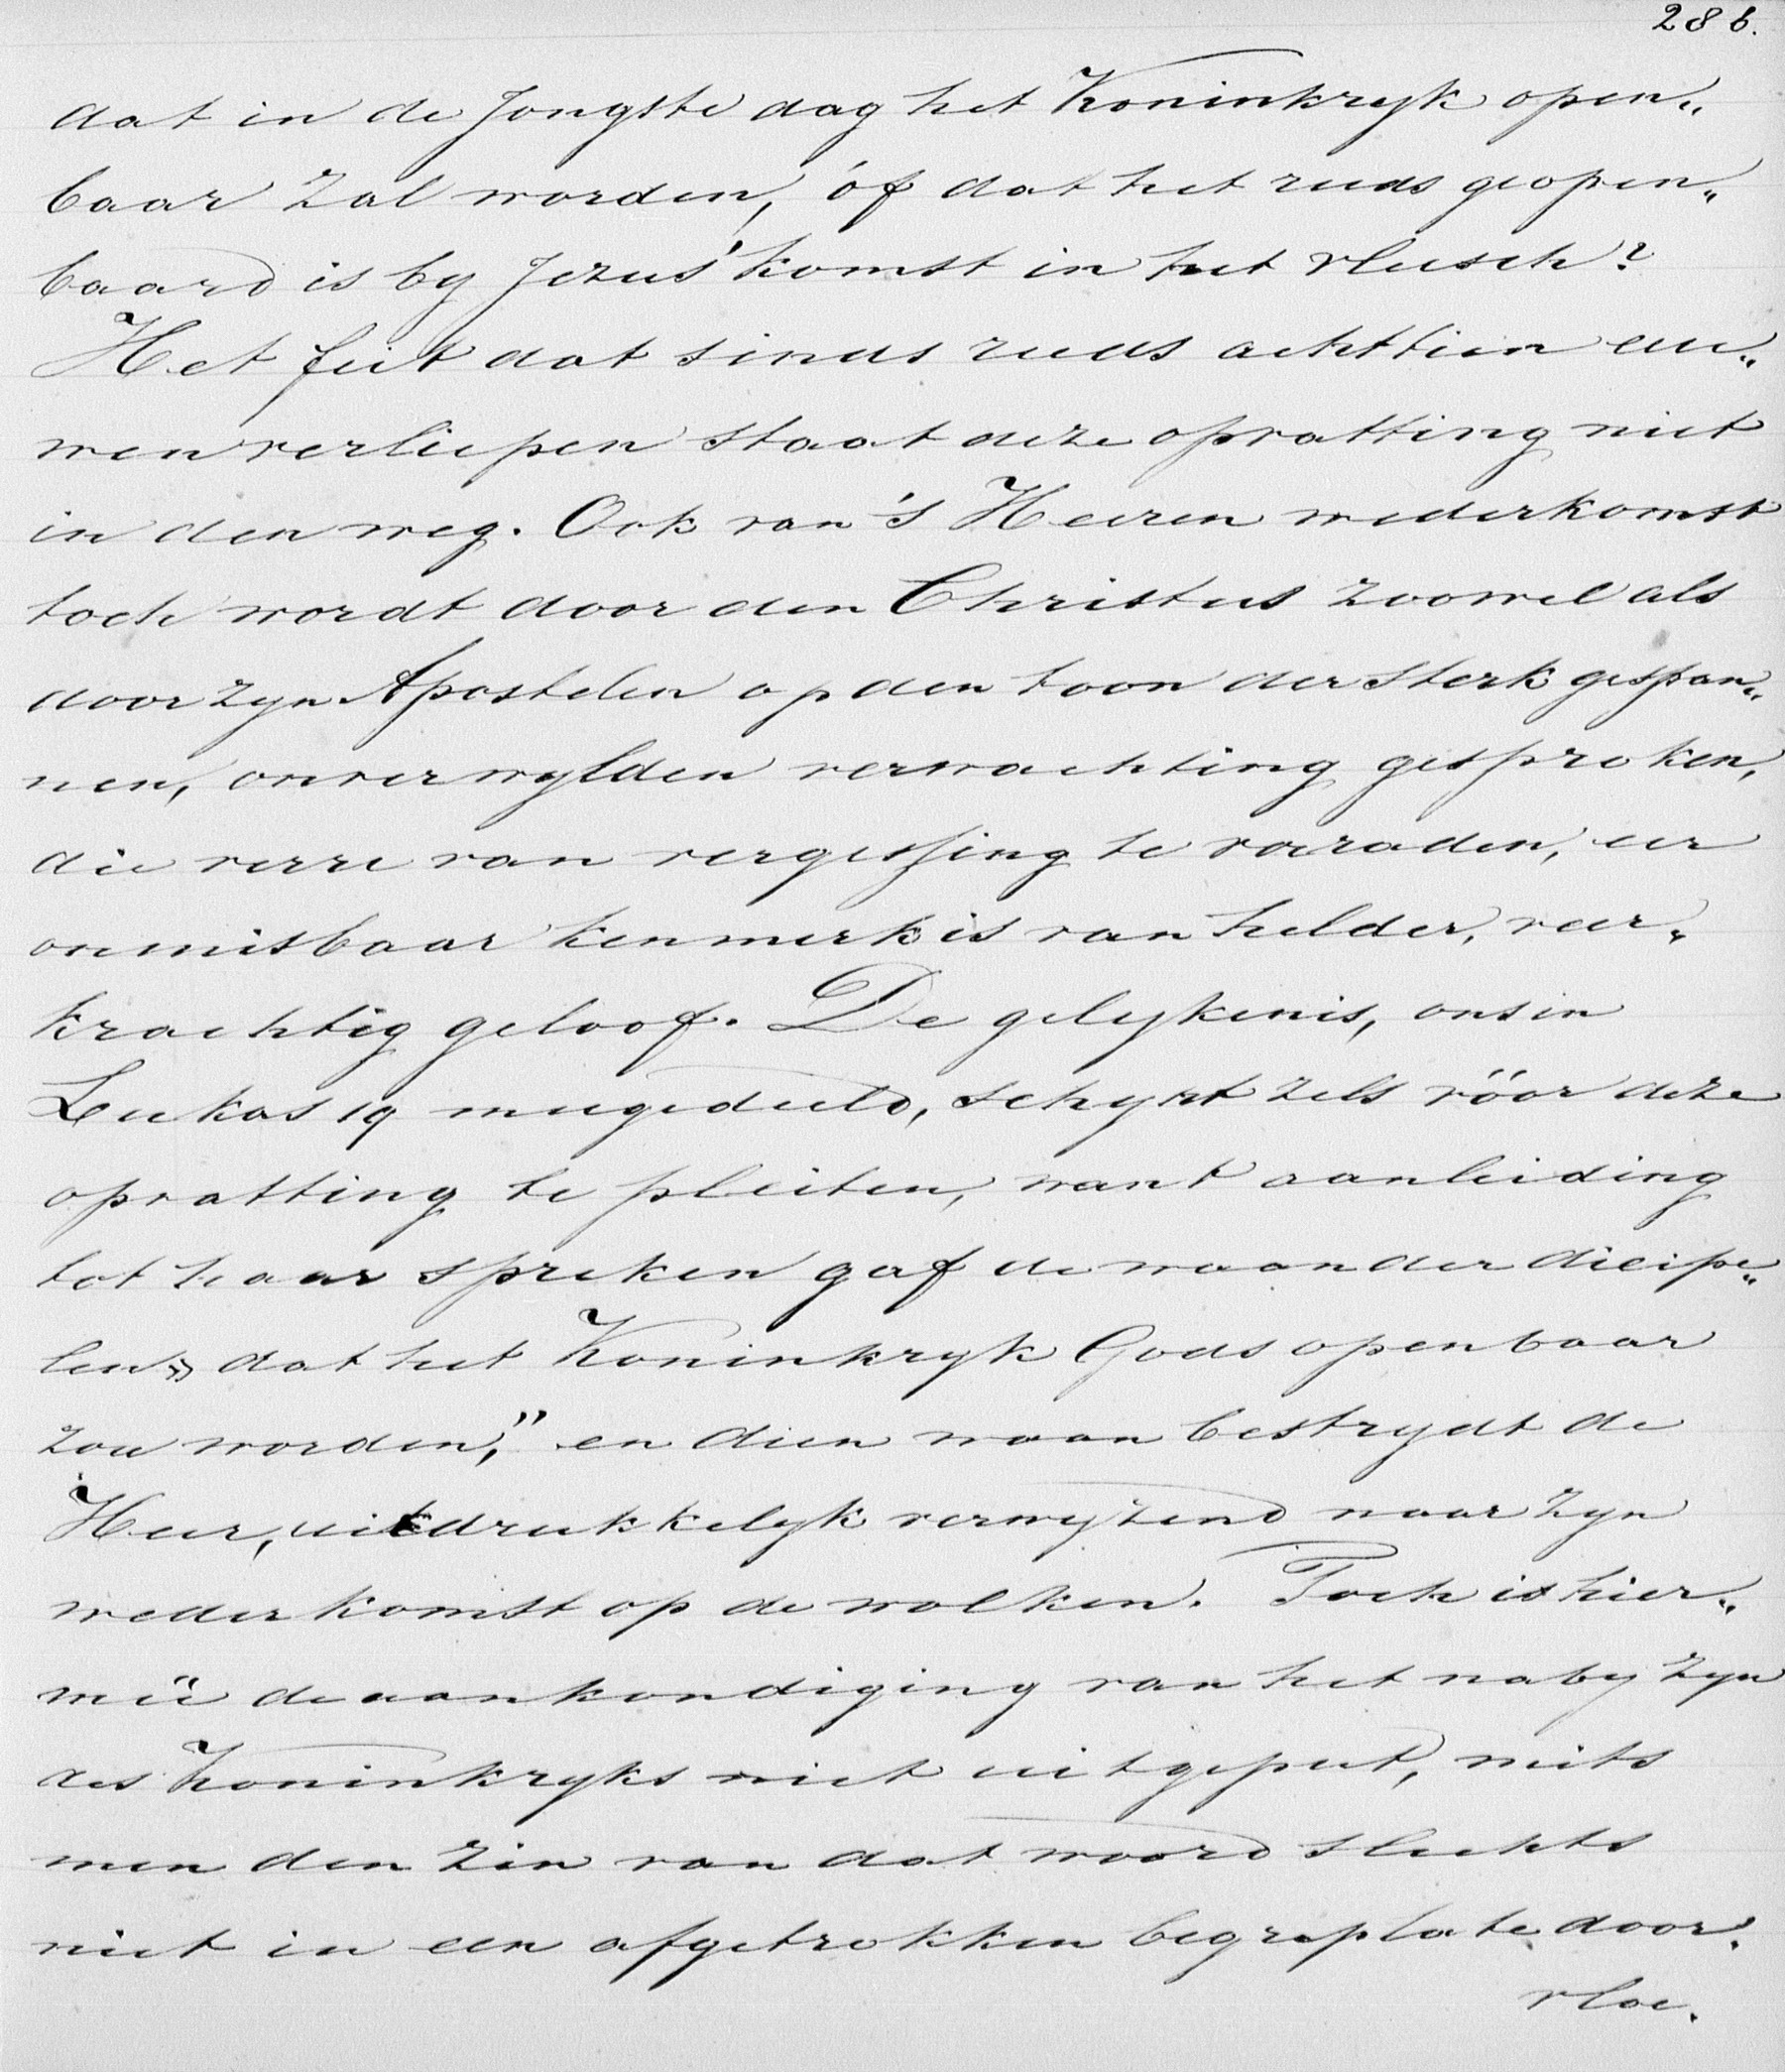 286.
dat in de Jongste dag het Koninkryk open„
baar zal worden, óf dat het reeds geopen„
baard is by Jezus' komst in het vleesch?
Het feit dat sinds reeds achttien eeu„
wen verliepen staat deze opvatting niet
in den weg. Ook van 's Heeren wederkomst
toch wordt door den Christus zoowel als
door zyn Apostelen op den toon der sterk gespan„
nen, onverwylden verwachting gesproken,
die verre van vergissing te verraden, eer
onmisbaar kenmerk is van helder, veer„
krachtig geloof. De gelykenis, ons in
Lukas 19 meegedeeld, schynt zelfs vóór deze
opvatting te pleiten, want aanleiding
tot haar spreken gaf de waan der dicipe„
len„ dat het Koninkryk Gods openbaar
zou worden," en dien waan bestrydt de
Heer, uitdrukkelyk verwyzend naar zyn
wederkomst op de wolken. Toch is hier„
meê de aankondiging van het naby zyn
des Koninkryks niet uitgeput, mits
men den zin van dat woord slechts
niet in een afgetrokken begrip late door„
vloe.